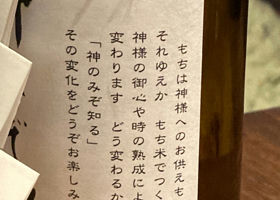 もちは神様へのお供えも
それゆえか もち米でつく
神様の御心や時の熟成によ
変わります どう変わるか
「神のみぞ知る」
その変化をどうぞお楽しみ